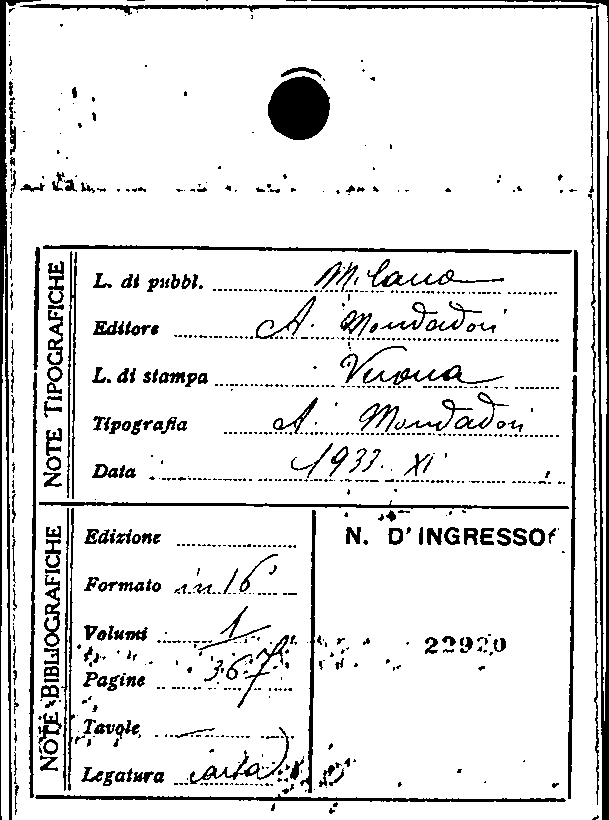 NOTE TIPOGRAFICHE
L. di pubbl. Milano
Editore A. Mondadori
L. di stampa Verona
Tipografia A. Mondadori
Data 1933. XI
NOTE BIBLIOGRAFICHE
Edizione
Formato in 16°
Volumi 1
Pagine 367
Tavole —
Legatura carta
N. D'INGRESSO
22920